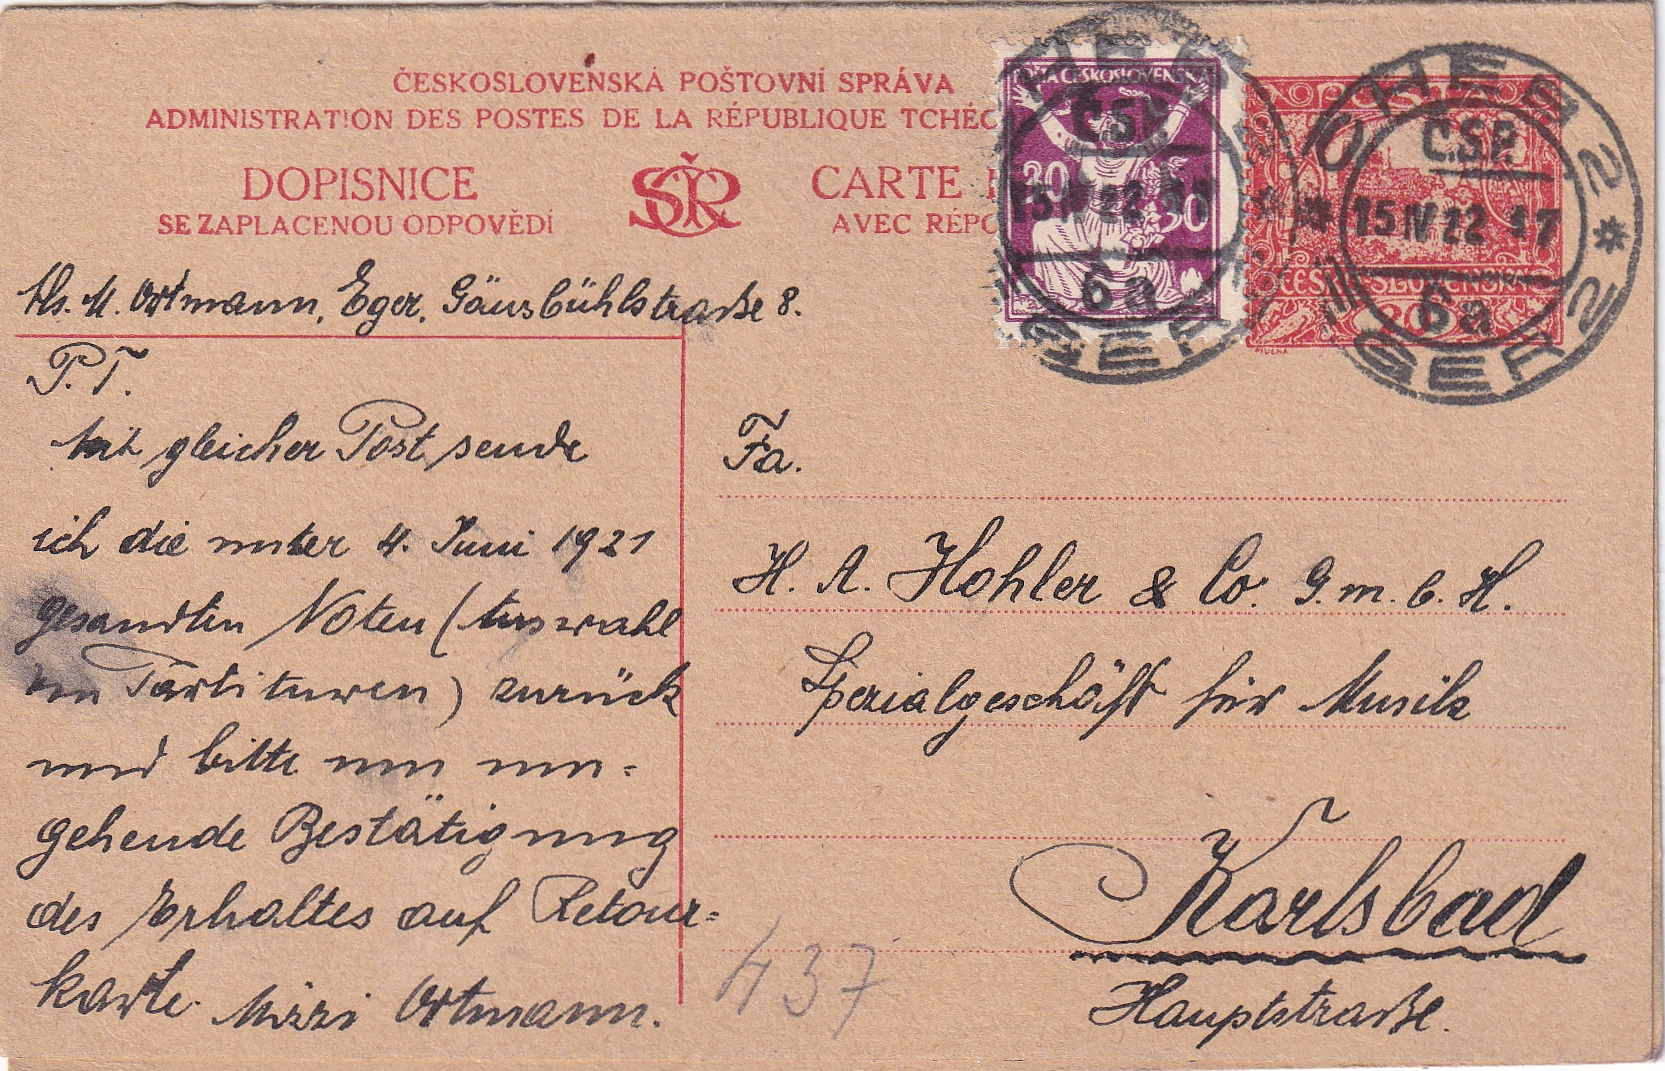 ČESKOSLOVENSKÁ POŠTOVNÍ SPRÁVA
ADMINISTRATION DES POSTES DE LA RÉPUBLIQUE TCHÉC
DOPISNICE
SE ZAPLACENOU ODPOVĚDÍ
SČR
CARTE
AVEC RÉPO
POŠTA ČESKOSLOVENSKÁ
30 30
CHEB 2
Č.S.P.
15 IV 22
6a
EGER 2
CHEB 2
Č.S.P.
15 IV 22 17
6a
EGER 2
ČESKOSLOVENSKÁ
M. Ortmann, Eger, Gänsbühlstraße 8.
P. T.
Mit gleicher Post sende
ich die unter 4. Juni 1921
gesandten Noten (Auswahl
in Partituren) zurück
und bitte um um-
gehende Bestätigung
des Erhaltes auf Retour-
karte. Mizzi Ortmann.
Fa.
H. A. Hohler & Co. G. m. b. H.
Spezialgeschäft für Musik
Karlsbad
Hauptstraße.
437